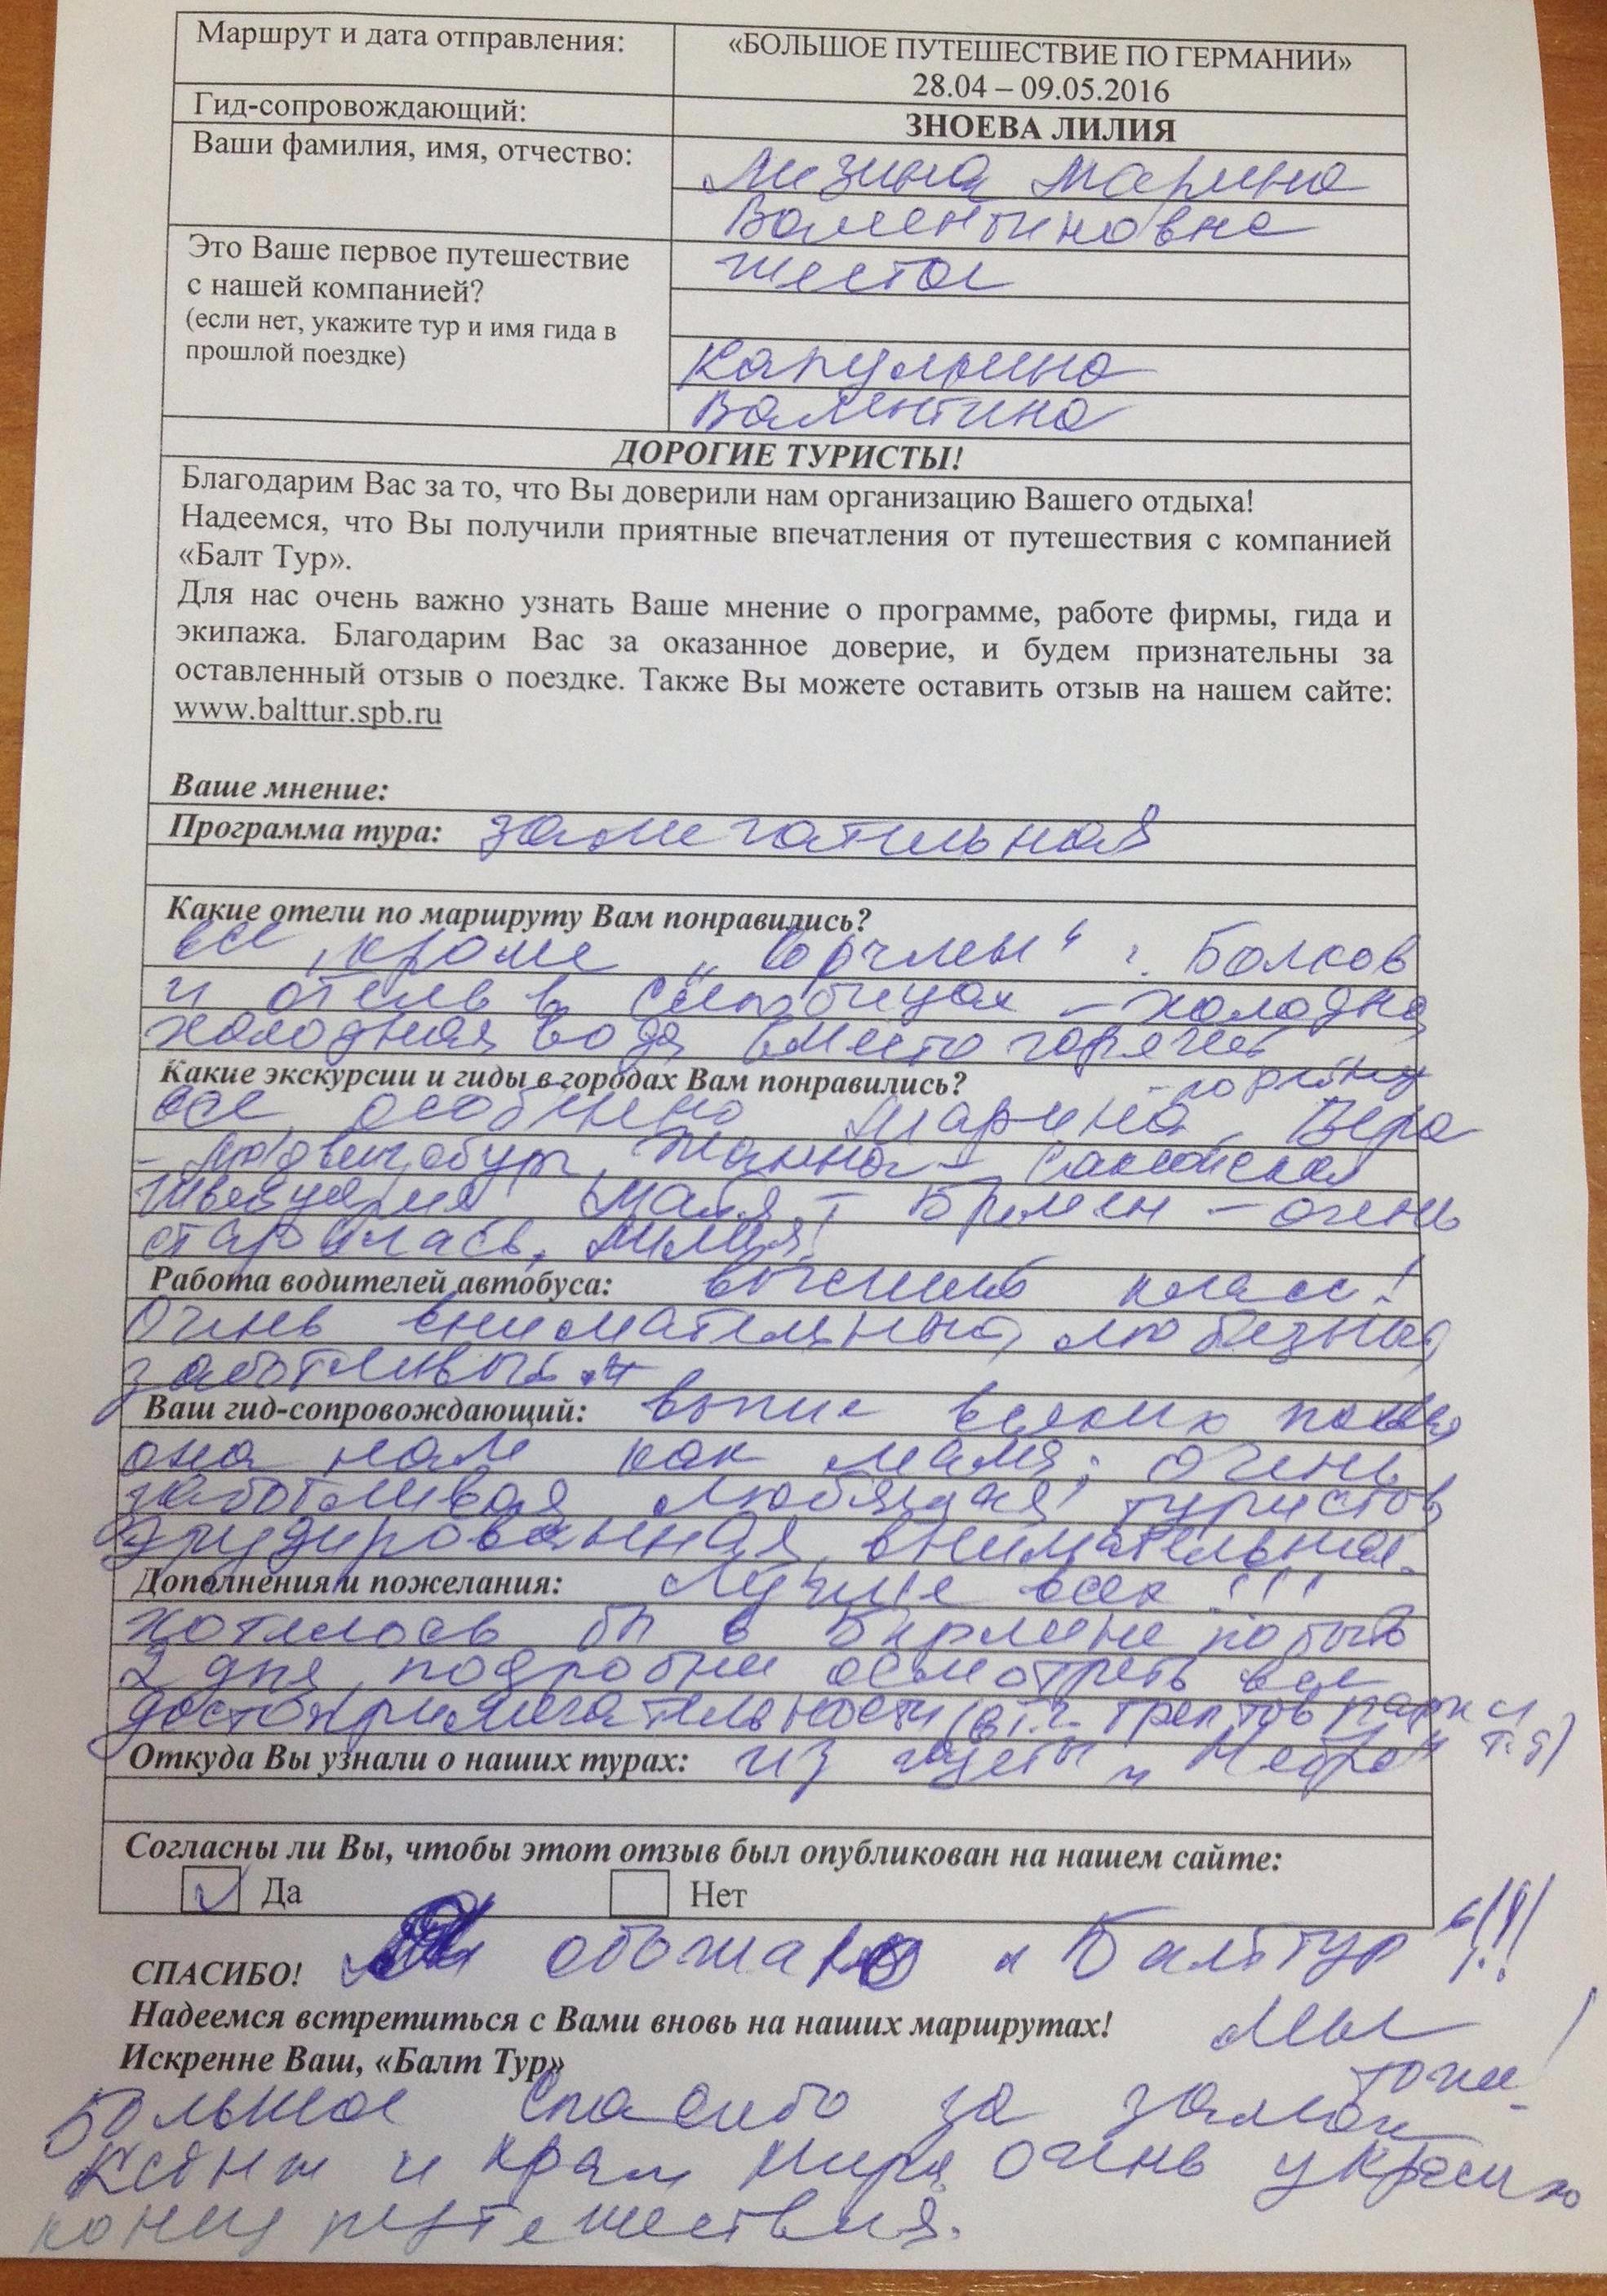 Маршрут и дата отправления:
«БОЛЬШОЕ ПУТЕШЕСТВИЕ ПО ГЕРМАНИИ»
28.04 – 09.05.2016
Гид-сопровождающий:
ЗНОЕВА ЛИЛИЯ
Ваши фамилия, имя, отчество:
Лизина Марина
Валентиновна
Это Ваше первое путешествие
с нашей компанией?
(если нет, укажите тур и имя гида в
прошлой поездке)
шестое
Валентина
ДОРОГИЕ ТУРИСТЫ!
Благодарим Вас за то, что Вы доверили нам организацию Вашего отдыха!
Надеемся, что Вы получили приятные впечатления от путешествия с компанией
«Балт Тур».
Для нас очень важно узнать Ваше мнение о программе, работе фирмы, гида и
экипажа. Благодарим Вас за оказанное доверие, и будем признательны за
оставленный отзыв о поездке. Также Вы можете оставить отзыв на нашем сайте:
www.balttur.spb.ru
Ваше мнение:
Программа тура: замечательная
Какие отели по маршруту Вам понравились?
все, кроме
и отель в
холодная вода вместо горячей
Какие экскурсии и гиды в городах Вам понравились?
все, особенно Марина, Вера
Жанна – Саксонская
Швейцария, Майя – Бремен – очень
старалась, Лилия!
Работа водителей автобуса: высший класс!
Очень внимательные, любезные,
заботливые.
Ваш гид-сопровождающий: выше всяких похвал,
она нам как мама; очень
заботливая, любящая туристов,
эрудированная, внимательная.
Дополнения и пожелания: Лучше всех!!!
Хотелось бы в Берлине побыть
2 дня, подробнее осмотреть все
достопримечательности (в т.ч. Трептов парк и
т.д)
Откуда Вы узнали о наших турах: из газеты „Метро“
Согласны ли Вы, чтобы этот отзыв был опубликован на нашем сайте:
Да
Нет
СПАСИБО! обожаю „Балттур“!!!
Надеемся встретиться с Вами вновь на наших маршрутах! Мы
тоже!
Искренне Ваш, «Балт Тур»
Большое спасибо за замок
Ксёнж и храм Мира, очень украсило
конец путешествия.